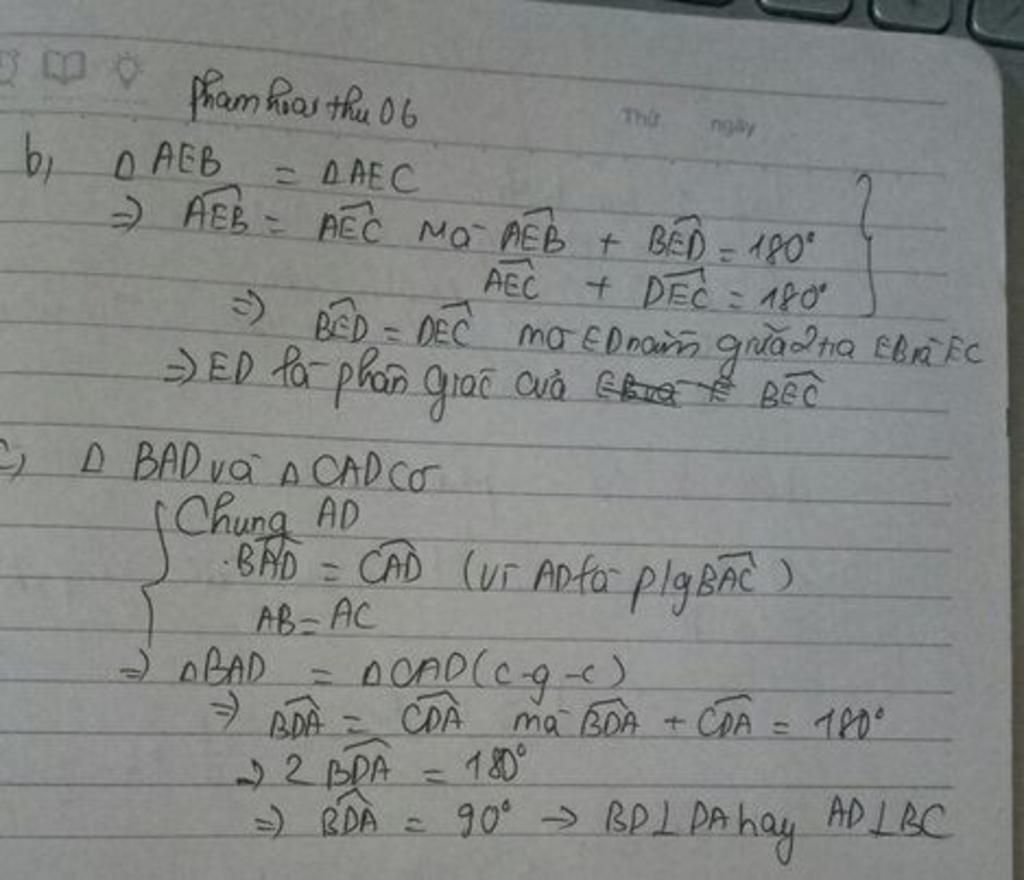 phamhoaithu06
Thứ ngày
b, Δ AEB = Δ AEC
=> \widehat{AEB} = \widehat{AEC} Mà \widehat{AEB} + \widehat{BED} = 180°
\widehat{AEC} + \widehat{DEC} = 180°
=> \widehat{BED} = \widehat{DEC} mà ED nằm giữa 2 tia EB và EC
=> ED là phân giác của \widehat{BEC}
c, Δ BAD và Δ CAD có
Chung AD
\widehat{BAD} = \widehat{CAD} (vì AD là p/g \widehat{BAC})
AB = AC
=> Δ BAD = Δ CAD (c-g-c)
=> \widehat{BDA} = \widehat{CDA} mà \widehat{BDA} + \widehat{CDA} = 180°
=> 2 \widehat{BDA} = 180°
=> \widehat{BDA} = 90° → BD ⊥ DA hay AD ⊥ BC